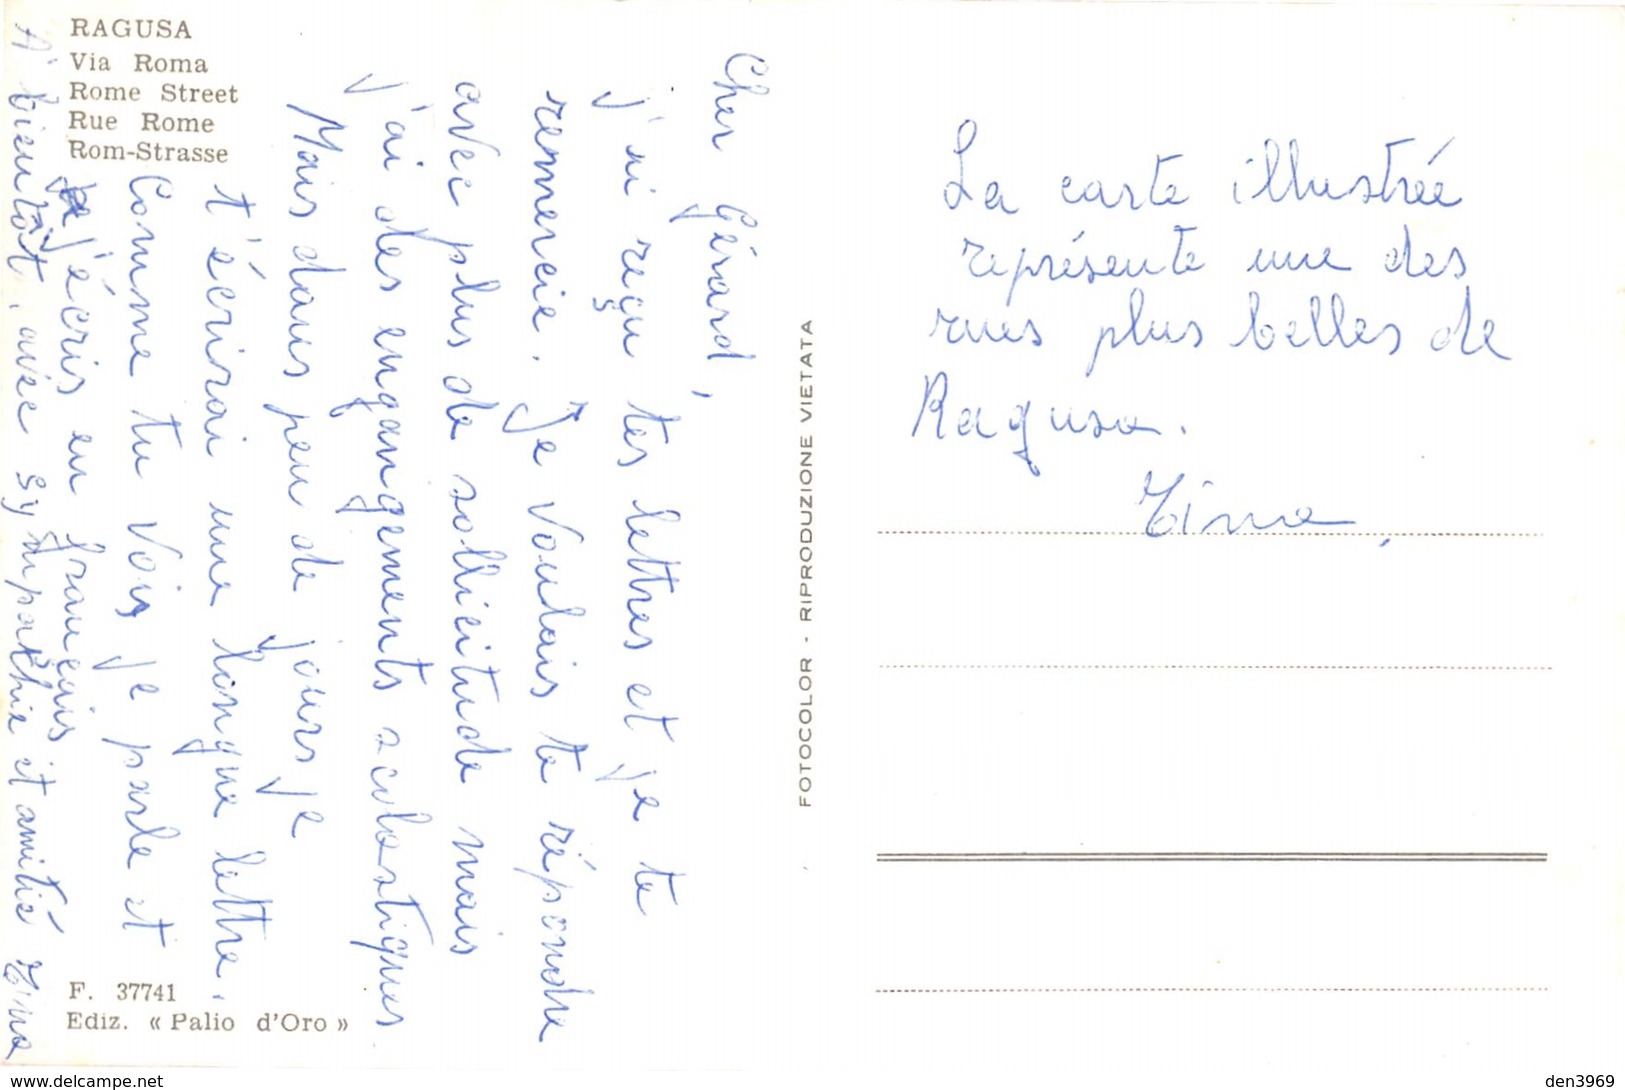 RAGUSA
Via Roma
Rome Street
Rue Rome
Rom-Strasse
Cher Gérard,
j'ai reçu tes lettres et je te
remercie. Je voudais te répondre
avec plus de sollicitude mais
j'ai des engangements scolastiques
Mais dans peu de jours je
t'écrirai une longue lettre.
Comme tu vois je parle et
j'écris en français
A bientôt, avec sympathie et amitié Tina
F. 37741
Ediz. « Palio d'Oro »
FOTOCOLOR - RIPRODUZIONE VIETATA
La carte illustrée
représente une des
rues plus belles de
Ragusa.
Tina
delcampe.net
den3969